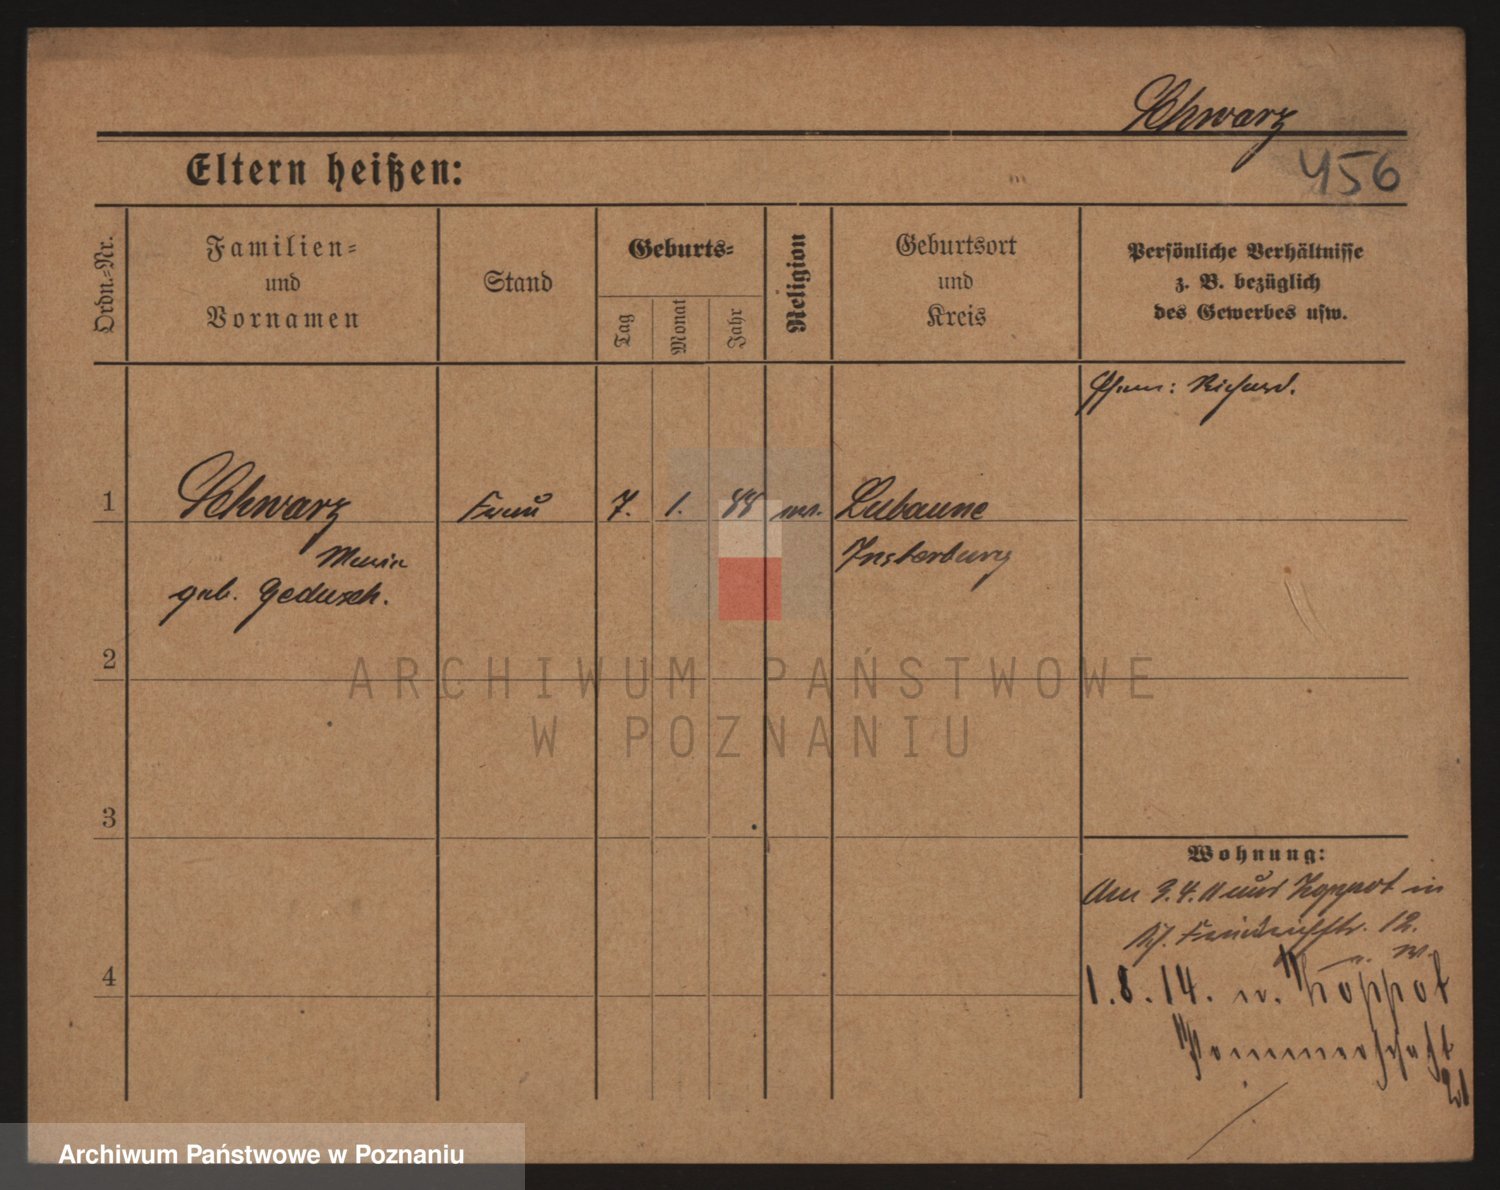 Schwarz
Eltern heißen:
456
Ordn.=Nr.
Familien=
und
Vornamen
Stand
Geburts=
Tag
Monat
Jahr
Religion
Geburtsort
und
Kreis
Persönliche Verhältnisse
z. B. bezüglich
des Gewerbes usw.
Ehem: Richard.
1
Schwarz
Frau
7.
1.
88
ev.
Lubaune
Maria
Insterburg
geb. Gedusch.
2
ARCHIWUM PAŃSTWOWE
W POZNANIU
3
Wohnung:
Am 3.4.11 aus Zoppot in
Friedrichstr. 12.
4
1.8.14. n. Zoppot
Pommerschestr
21
Archiwum Państwowe w Poznaniu